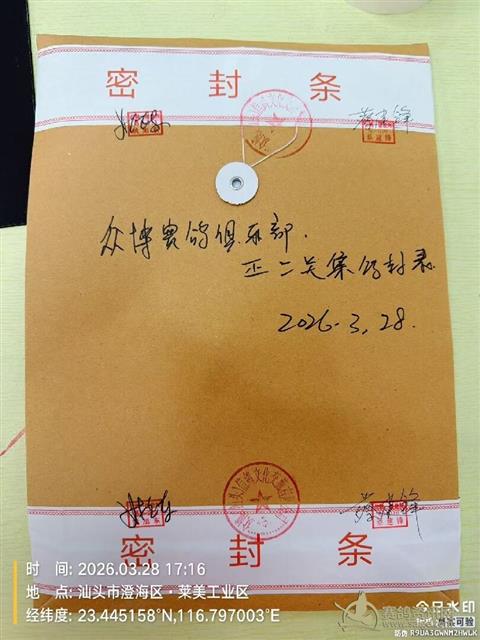 密 封 条
众博赛鸽俱乐部.
正二关集鸽封录
2026.3.28.
密 封 条
时 间: 2026.03.28 17:16
地 点: 汕头市澄海区·莱美工业区
经纬度: 23.445158°N,116.797003°E
今日水印
相机 真实可验
防伪 R9UA3GWNM2HWLK